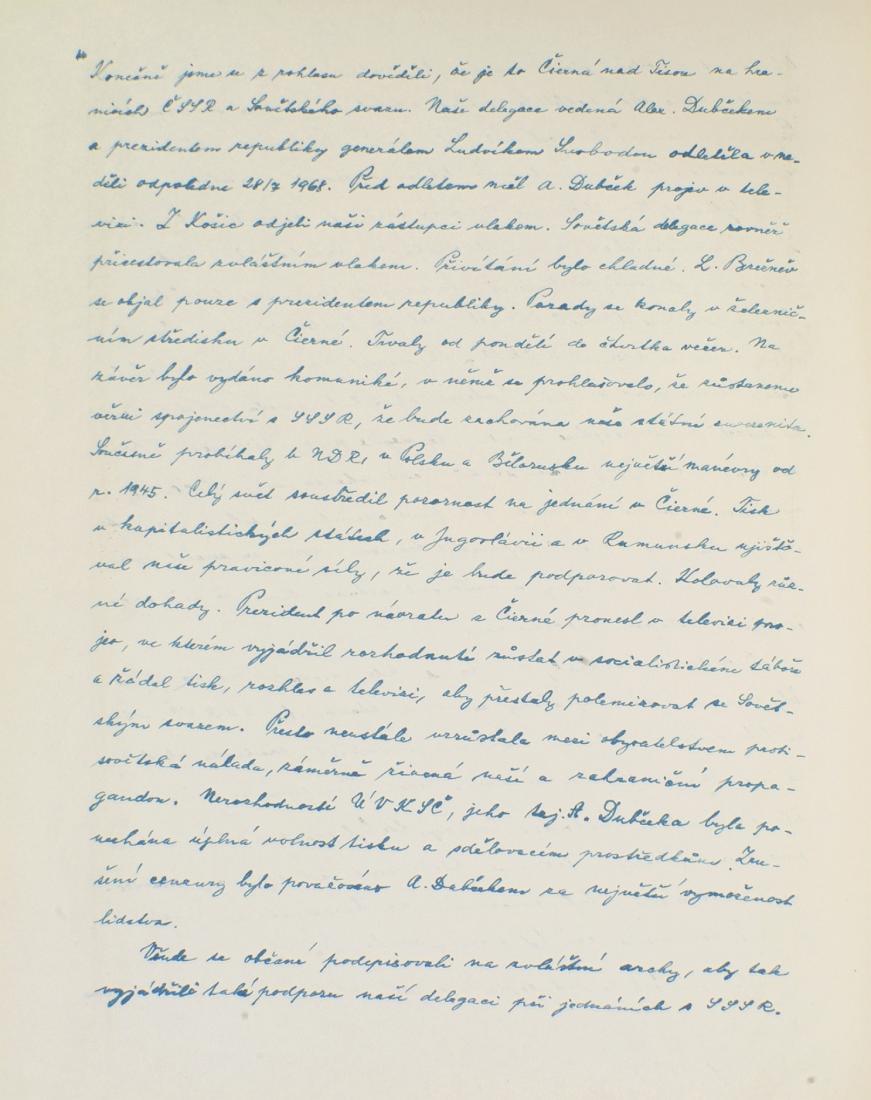 "Konečně jsme se z rohlasu dověděli, že je to Čierná nad Tisou na hra-
nicích ČSSR a Sovětského svazu. Naše delegace vedená Alex. Dubčekem
a prezidentem republiky generálem Ludvíkem Svobodou odletěla v ne-
děli odpoledne 28/7 1968. Před odletem měl A. Dubček projev v tele-
vizi. Z Košic odjeli naši zástupci vlakem. Sovětská delegace rovněž
přicestovala zvláštním vlakem. Přivítání bylo chladné. L. Brežněv
se objal pouze s prezidentem republiky. Porady se konaly v železnič-
ním středisku v Čierné. Trvaly od pondělí do čtvrtka večer. Na
závěr bylo vydáno komuniké, v němž se prohlašovalo, že zůstaneme
věrni spojenectví s SSSR, že bude zachována naše státní suverenita.
Současně probíhaly v NDR, v Polsku a Bělorusku největší manévry od
r. 1945. Celý svět soustředil pozornost na jednání v Čierné. Tisk
v kapitalistických státech, v Jugoslávii a v Rumunsku ujišťo-
val naše pravicové síly, že je bude podporovat. Kolovaly růz-
né dohady. Prezident po návratu z Čierné pronesl v televizi pro-
jev, ve kterém vyjádřil rozhodnutí zůstat v socialistickém táboře
a žádal tisk, rozhlas a televizi, aby přestaly polemizovat se Sovět-
ským svazem. Přesto neustále vzrůstala mezi obyvatelstvem proti-
sovětská nálada, záměrně řízená naší a zahraniční propa-
gandou. Nerozhodností ÚV KSČ, jeho taj. A. Dubčeka byla po-
nechána úplná volnost tisku a sdělovacím prostředkům. Zru-
šení cenzury bylo považováno A. Dubčekem za největší vymoženost
lidstva.
Všude se občané podepisovali na zvláštní archy, aby tak
vyjádřili také podporu naší delegaci při jednáních s SSSR.